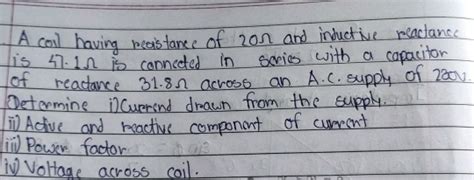 A coil having resistance of 20Ω and inductive reactance
is 47.1Ω is connected in series with a capacitor
of reactance 31.8Ω across an A.C. supply of 220V.
Determine i) Current drawn from the supply.
ii) Active and reactive component of current
iii) Power factor
iv) Voltage across coil.